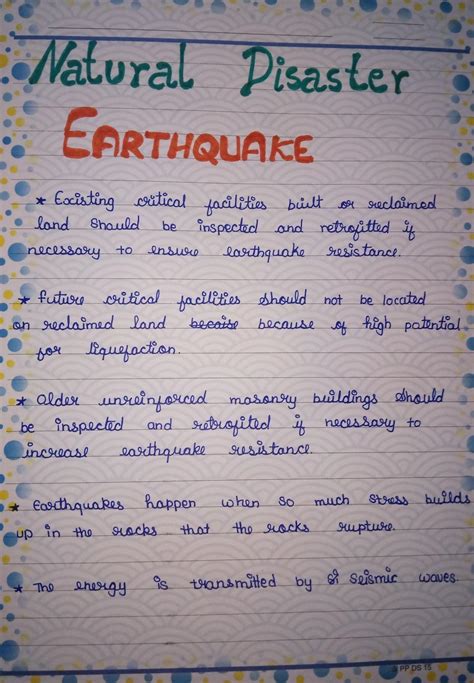 Natural Disaster
EARTHQUAKE
* Existing critical facilities built or reclaimed
land should be inspected and retrofitted if
necessary to ensure earthquake resistance.
* Future critical facilities should not be located
on reclaimed land because of high potential
for liquefaction.
* Older unreinforced masonry buildings should
be inspected and retrofited if necessary to
increase earthquake resistance.
* Earthquakes happen when so much stress builds
up in the rocks that the rocks rupture.
* The energy is transmitted by seismic waves.
PP DS 15